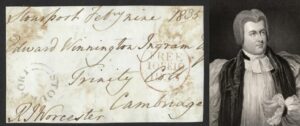 Stourport Feby nine 1835
Edward Winnington Ingram
Trinity Coll
Cambridge
FREE
R J Worcester